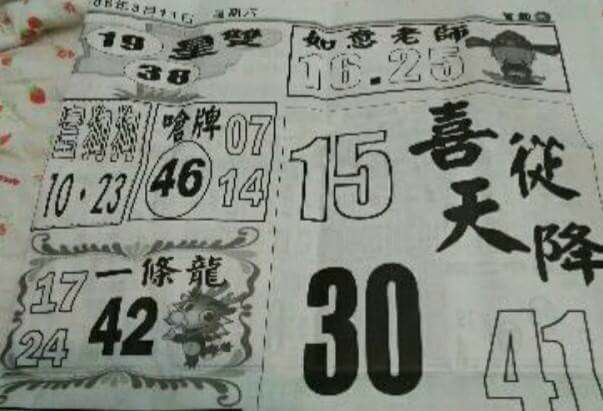 星期六
19 星雙
38
如意老師
16.25
10.23
嗆牌
46
07
14
一條龍
17
42
24
喜從天降
15
30
41